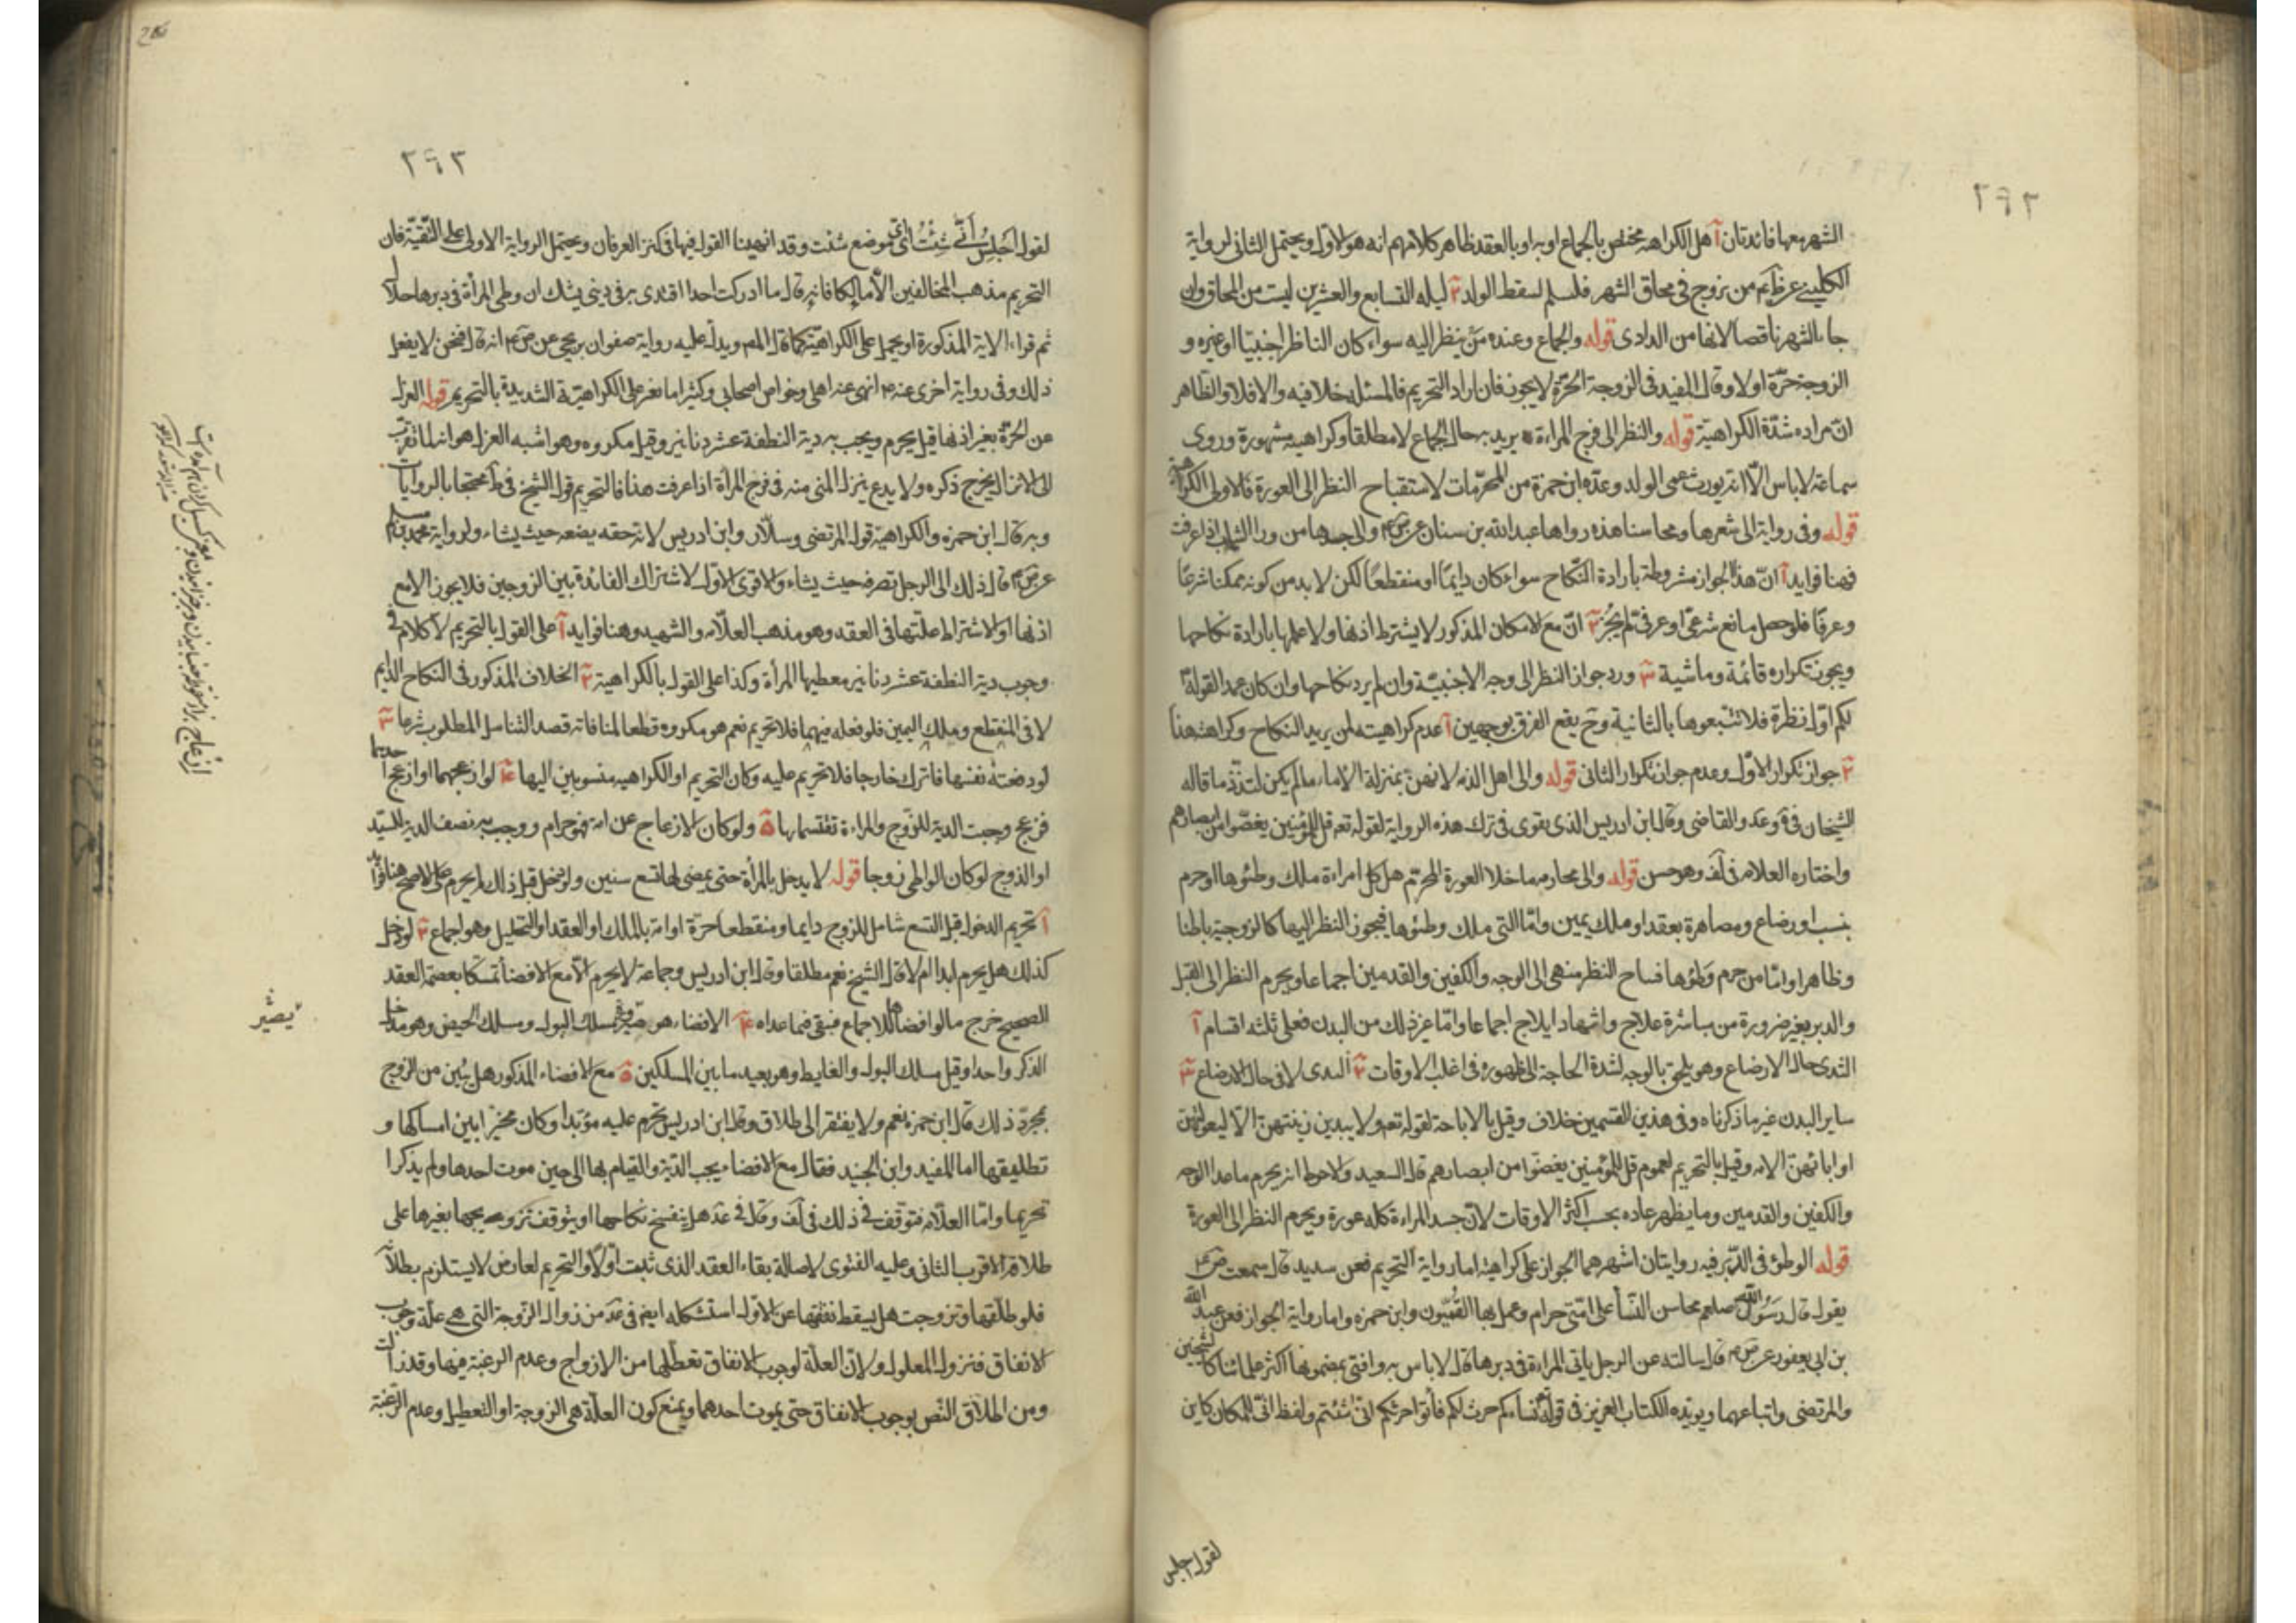 ٢٩٢
الشهر معها فائدتان آ هل الكراهه مختص بالجماع او به او بالعقد ظاهر كلامهم انه هو الاول ويحتمل الثانى لرواية
الكلينى عن ظم من تزوج فى محاق الشهر فليسلم لسقط الولد ٢ ليله السابع والعشرين ليست من المحاق وان
جاء الشهر ناقصا لانها من الدادى قوله والجماع وعنده من ينظر اليه سواء كان الناظر اجنبيا او غيره و
الزوجة حرة او لا وقال المفيد فى الزوجة الحرة لا يجوز فان اراد التحريم فالمسئله خلافيه والا فلا والظاهر
ان مراده شدة الكراهية قوله والنظر الى فرج المراءة يريد به حال الجماع لا مطلقا وكراهيه مشهورة وروى
سماعة لا باس الا انه يورث عمى الولد وعده ابن حمزة من المحرمات لاستقباح النظر الى العورة فالاولى الكراهية
قوله وفى رواية الى شعرها ومحاسنها هذه رواها عبد الله بن سنان عن ص والى جسدها من وراء الثياب اذا عرفت
فهنا فوايد آ ان هذا الجواز مشروطة بارادة النكاح سواء كان دايما او منقطعا لكن لا بد من كونه ممكنا شرعا
وعرفا فلو حصل مانع شرعى او عرفى لم يجز ٢ ان مع الامكان المذكور لا يشترط اذنها ولا علمها بارادة نكاحها
ويجوز تكراره قائمة وماشية ٣ ورد جواز النظر الى وجه الاجنبية وان لم يرد نكاحها وان كان عمدا لقوله
لكم اول نظرة فلا تتبعوها بالثانية وح يقع الفرق بوجهين آ عدم كراهيته لمن يريد النكاح وكراهته هنا
٢ جواز تكرار الاول وعدم جواز تكرار الثانى قوله والى اهل الذمه لانهن بمنزلة الاماء ما لم يكن لتلذذ ما قاله
الشيخان فى ة وعد والقاضى وقال ابن ادريس الذى يقوى فى ترك هذه الرواية لقوله تعه قل للمؤمنين يغضوا من ابصارهم
واختاره العلامه فى لف وهو حسن قوله والى محارمه ما خلا العورة المحرم هل كل امراءة ملك وطئوها او حرم
بنسب او رضاع او مصاهرة بعقد او ملك يمين واما التى ملك وطئوها فيجوز النظر اليها كالزوجية باطنا
وظاهرا واما من حرم وطؤها فساح النظر منهى الى الوجه والكفين والقدمين اجماعا ويحرم النظر الى القبل
والدبر بغير ضرورة من مباشرة علاج واشهاد ايلاج اجماعا واما غير ذلك من البدن فعلى ثلثه اقسام آ
الثدى حال الارضاع وهو يلحق بالوجه لشدة الحاجة الى ظهوره فى اغلب الاوقات ٢ الثدى لا فى حال الارضاع ٣
ساير البدن غير ما ذكرناه وفى هذين القسمين خلاف وقيل بالاباحة لقوله تعه ولا يبدين زينتهن الا لبعولتهن
او ابائهن الايه وقيل بالتحريم لعموم قل للمؤمنين يغضوا من ابصارهم قال السعيد والاحوط انه يحرم ما عدا الوجه
والكفين والقدمين وما يظهر عاده بحسب اكثر الاوقات لان جسد المراءة كله عورة ويحرم النظر الى العورة
قوله الوطئ فى الدبر فيه روايتان اشهرهما الجواز على كراهية اما رواية التحريم فعن سدير قال سمعت ص ع
يقول قال رسول الله صلعم محاسن النسأ على امتى حرام وعمل بها القميون وابن حمزه واما رواية الجواز فعن عبد الله
بن ابى يعفور عن ص ع قال سالته عن الرجل ياتى المراءة فى دبرها قال لا باس به وافتى بمضمونها اكثر علمائنا كالشيخين
والمرتضى واتباعهما ويويده الكتاب العزيز فى قوله تع نساءكم حرث لكم فأتوا حرثكم انى شئتم ولفظ انى للمكان كاين
لقولك اجلس
٢٩٣
لقولك اجلس أنى شئت اى موضع شئت وقد انهينا القول فيها فى كنز العرفان ويحتمل الرواية الاولى على التقية فان
التحريم مذهب المخالفين الا مالكا فانه قال ما ادركت احدا اقتدى به فى دينى يشك ان وطى المرأة فى دبرها حلال
ثم قراء الاية المذكورة او يحمل على الكراهية كما قال المص ويدل عليه رواية صفوان بن يحيى عن ض ع انه قال نحن لا يفعل
ذلك وفى رواية اخرى عنه ع انهى عنه اهلى وخواص اصحابى وكثيرا ما نعبر على الكراهية الشديدة بالتحريم قوله العزل
عن الحرة بغير اذنها قيل يحرم ويجب به دية النطفة عشر دنانير وقيل مكروه وهو اشبه العزل هو انه لما تقرب
الى الانزال يخرج ذكره ولا يدع ينزل المنى منه فى فرج المرأة اذا عرفت هذا فالتحريم قول الشيخ فى ط محتجا بالروايات
وبه قال ابن حمزه والكراهية قول المرتضى وسلار وابن ادريس لانه حقه يضعه حيث يشاء ولرواية محمد بن مسلم
عن ص ع قال ذلك الى الرجل تصرفه حيث يشاء والاقوى الاول لاشتراك الفائدة بين الزوجين فلا يجوز الا مع
اذنها او الاشتراط عليها فى العقد وهو مذهب العلامه والشهيد وهنا فوايد آ على القول بالتحريم لا كلام فى
وجوب دية النطفة عشر دنانير معطيها المرأة وكذا على القول بالكراهية ٢ الخلاف المذكور فى النكاح الدايم
لا فى المنقطع وملك اليمين فلو فعله فيهما فلا تحريم نعم هو مكروه قطعا لمنافاته قصد التناسل المطلوب شرعا ٣
لو دفعته نفسها فانزل خارجا فلا تحريم عليه وكان التحريم او الكراهيه منسوبين اليها ٤ لو ازعجهما او ازعج احدهما
مزعج وجبت الدية للزوج والمراءة تقتسمانها ٥ ولو كان الازعاج عن امة فهو حرام ووجب به نصف الدية للسيد
او الزوج لو كان الواطى زوجا قوله لا يدخل بالمرأة حتى يمضى لها تسع سنين ولو دخل قبل ذلك لم يحرم على الاصح هنا فوائد
آ تحريم الدخول قبل التسع شامل للزوج دايما ومنقطعا حرة او امة بالملك او العقد او التحليل وهو اجماع ٢ لو دخل
كذلك هل يحرم ابدا ام لا قال الشيخ نعم مطلقا وقال ابن ادريس وجماعة لا يحرم الا مع الافضا تمسكا بعصمة العقد
الصحيح خرج ما لو افضاها للاجماع فبقى فيما عداه ٤ الافضاء هو صيرورة مسلك البول ومسلك الحيض وهو مدخل
الذكر واحدا وقيل مسلك البول والغايط وهو بعيد ما بين المسلكين ٥ مع الافضاء المذكور هل تبين من الزوج
بمجرد ذلك قال ابن حمزة نعم ولا يفتقر الى طلاق وقال ابن ادريس تحرم عليه مؤبدا وكان مخيرا بين امساكها و
تطليقها اما المفيد وابن الجنيد فقال مع الافضاء يجب الدية والقيام بها الى حين موت احدها ولم يذكرا
تحريما واما العلامه فتوقف فى ذلك فى لف وقال فى عد هل ينفسخ نكاحها او يتوقف تزويجها بغيرها على
طلاقه الاقرب الثانى وعليه الفتوى لاصالة بقاء العقد الذى ثبت اولا والتحريم لعارض لا يستلزم بطلانه
فلو طلقها وتزوجت هل يسقط نفقتها عن الاول استشكله ايضا فى عد من زوال الزوجة التى هى علة وجوب
الانفاق فنزول المعلول ولان العلة لوجوب الانفاق تعطلها من الازواج وعدم الرغبة فيها وقد زالت
ومن اطلاق النص بوجوب الانفاق حتى يموت احدهما ويمنع كون العلة هى الزوجة او التعطيل وعدم الرغبة
يصير